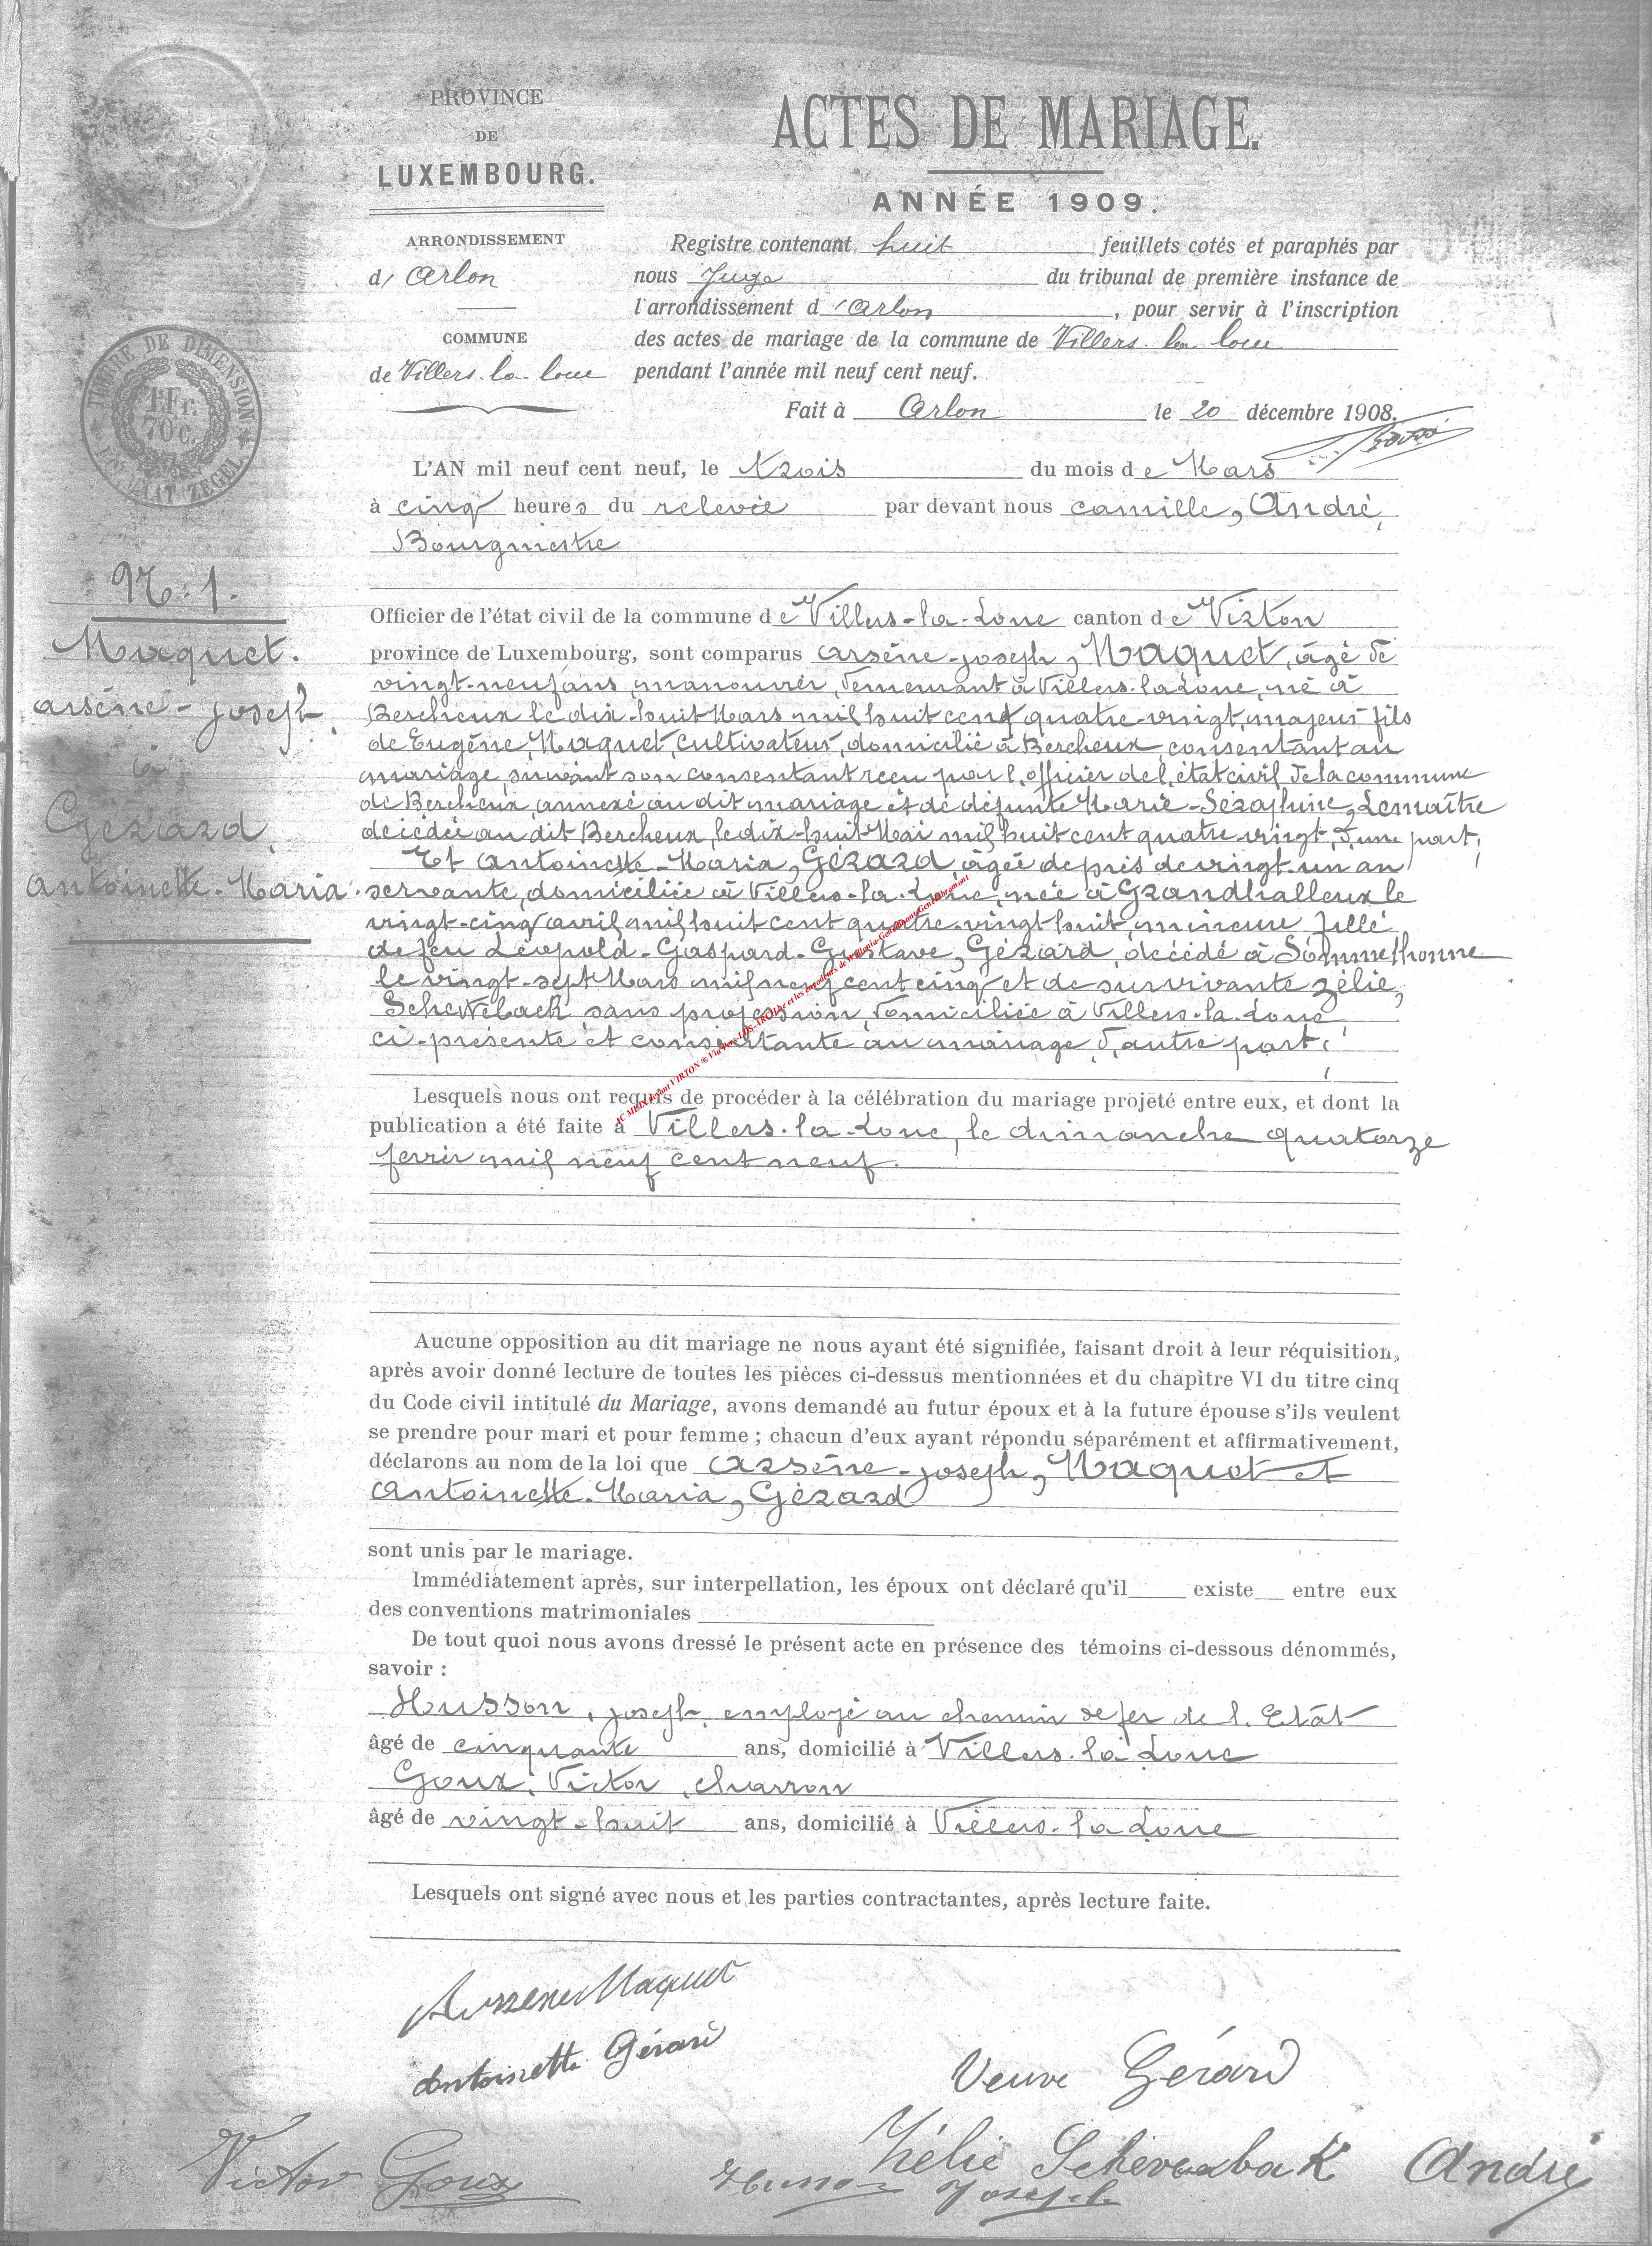 PROVINCE
DE
LUXEMBOURG.
ACTES DE MARIAGE.
ANNÉE 1909.
ARRONDISSEMENT
d' Arlon
COMMUNE
de Villers-la-loue
Registre contenant huit feuillets cotés et paraphés par
nous Juge du tribunal de première instance de
l'arrondissement d'Arlon, pour servir à l'inscription
des actes de mariage de la commune de Villers-la loue
pendant l'année mil neuf cent neuf.
Fait à Arlon le 20 décembre 1908.
TIMBRE DE DIMENSION
1 Fr.
70 c.
ZEGEL
L'AN mil neuf cent neuf, le trois du mois de Mars
à cinq heures du relevée par devant nous camille, André,
Bourgmestre
N: 1.
Maquet.
arsène-joseph.
à
Gérard.
antoinette-Maria.
Officier de l'état civil de la commune de Villers-la-Loue canton de Virton
province de Luxembourg, sont comparus arsène-joseph, Maquet, âgé de
vingt-neuf ans, manouvrier, demeurant à Villers-la Loue, né à
Bercheux le dix-huit Mars mil huit cent quatre-vingt, majeur fils
de Eugène, Maquet, cultivateur, domicilié à Bercheux consentant au
mariage suivant son consentant recu par l'officier de l'état civil de la commune
de Bercheux annexé au dit mariage et de défunte Marie-Séraphine, Lemaître
décédée au dit Bercheux, le dix-huit Mai mil huit cent quatre-vingt, d'une part;
Et antoinette-Maria, Gérard, âgée de près de vingt-un an
servante, domiciliée à Villers-la-Loue, née à Grandhalleux le
vingt-cinq avril mil huit cent quatre-vingt huit, mineure fille
de feu Léopold-Gaspard-Gustave, Gérard, décédé à Sommethonne
le vingt-sept Mars mil neuf cent cinq et de survivante zélie,
Schewebach sans profession, domiciliée à Villers-la-Loue,
ci-présente et consentante au mariage, d'autre part;
AC MEIX devant VIRTON ® Via
Lesquels nous ont requis de procéder à la célébration du mariage projeté entre eux, et dont la
publication a été faite à Villers-la-Loue, le dimanche quatorze
fevrier mil neuf cent neuf.
Aucune opposition au dit mariage ne nous ayant été signifiée, faisant droit à leur réquisition,
après avoir donné lecture de toutes les pièces ci-dessus mentionnées et du chapitre VI du titre cinq
du Code civil intitulé du Mariage, avons demandé au futur époux et à la future épouse s'ils veulent
se prendre pour mari et pour femme ; chacun d'eux ayant répondu séparément et affirmativement,
déclarons au nom de la loi que arsène-joseph, Maquet et
antoinette-Maria, Gérard
sont unis par le mariage.
Immédiatement après, sur interpellation, les époux ont déclaré qu'il existe entre eux
des conventions matrimoniales
De tout quoi nous avons dressé le présent acte en présence des témoins ci-dessous dénommés,
savoir :
Husson, joseph, employé au chemin de fer de l'Etat
âgé de cinquante ans, domicilié à Villers-la Loue
Goux, Victor, charron
âgé de vingt-huit ans, domicilié à Villers-la Loue
Lesquels ont signé avec nous et les parties contractantes, après lecture faite.
Arsène Maquet
Antoinette Gérard
Veuve Gérard
Zélie Schevebak
André
Victor Goux
Husson Joseph